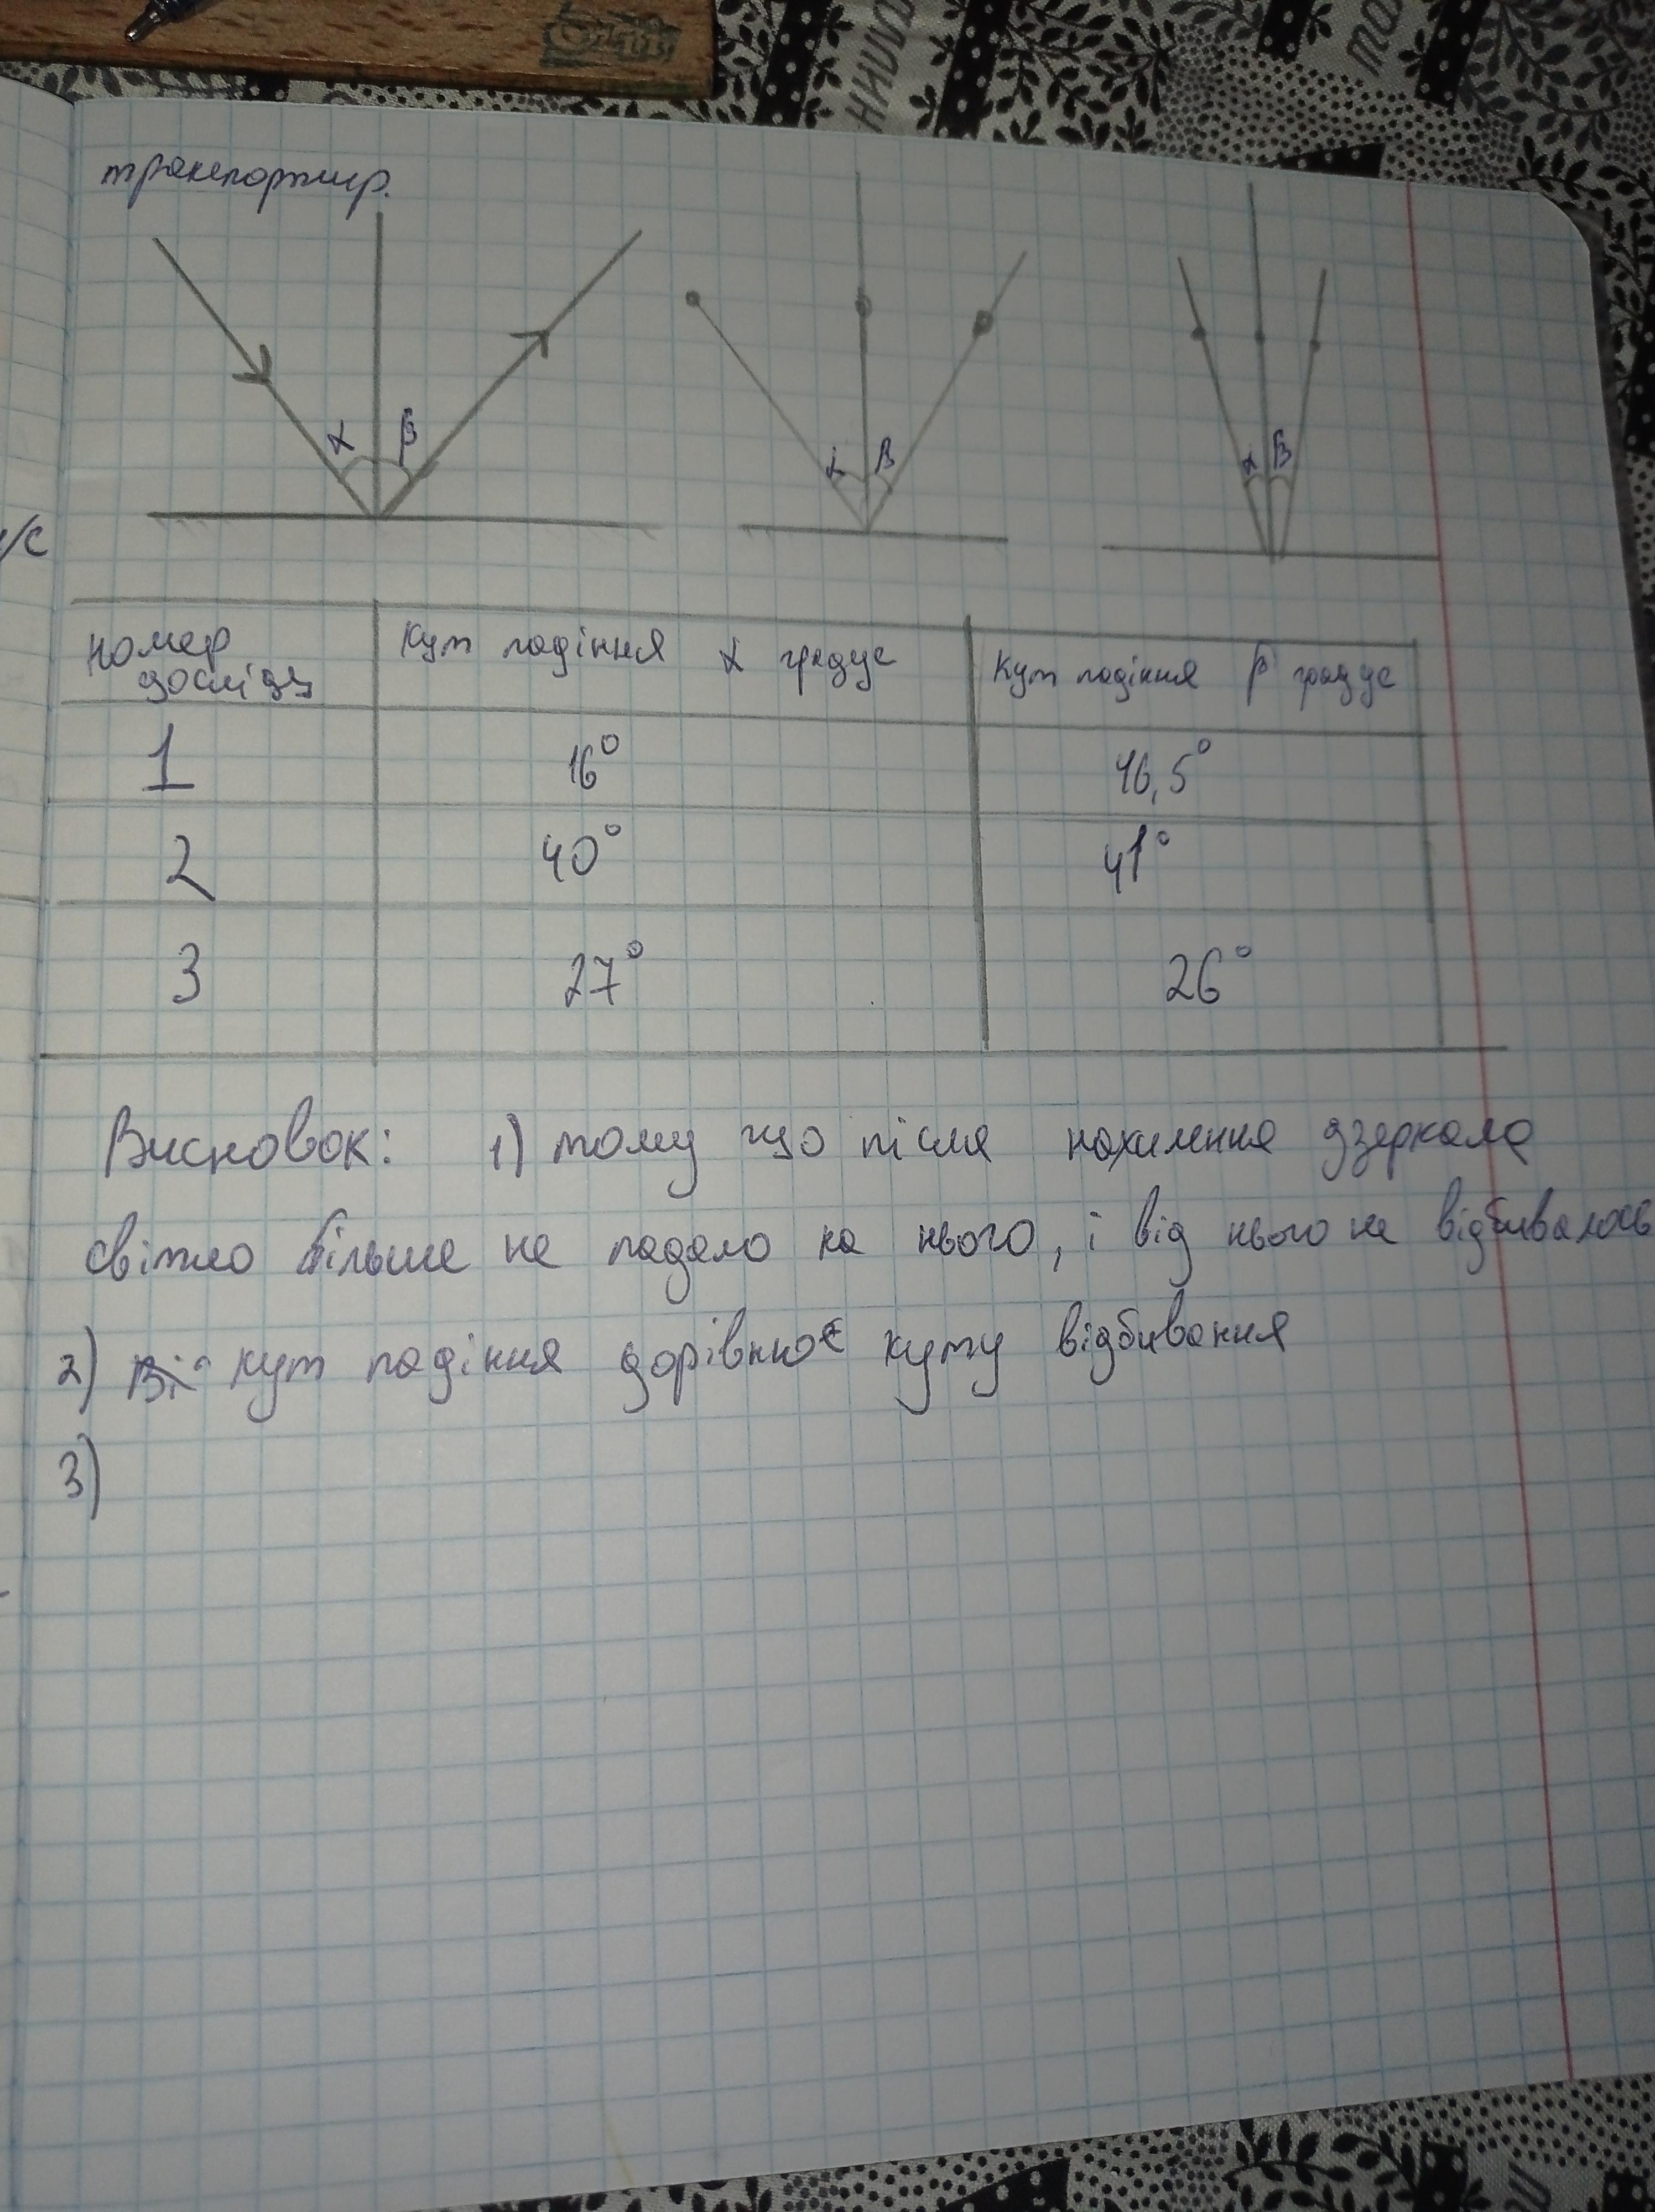 транспортир.
α β
α β
α β
/с
номер досліду
Кут падіння α градус
Кут падіння β градус
1 16° 46,5°
2 40° 41°
3 27° 26°
Висновок: 1) тому що після нахилення дзеркала
світло більше не падало на нього, і від нього не відбивалось
2) кут падіння дорівнює куту відбивання
3)